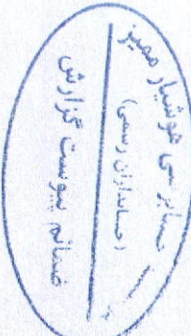 حسابرسی هوشیار ممیز
(حسابداران رسمی)
ضمائم پیوست گزارش